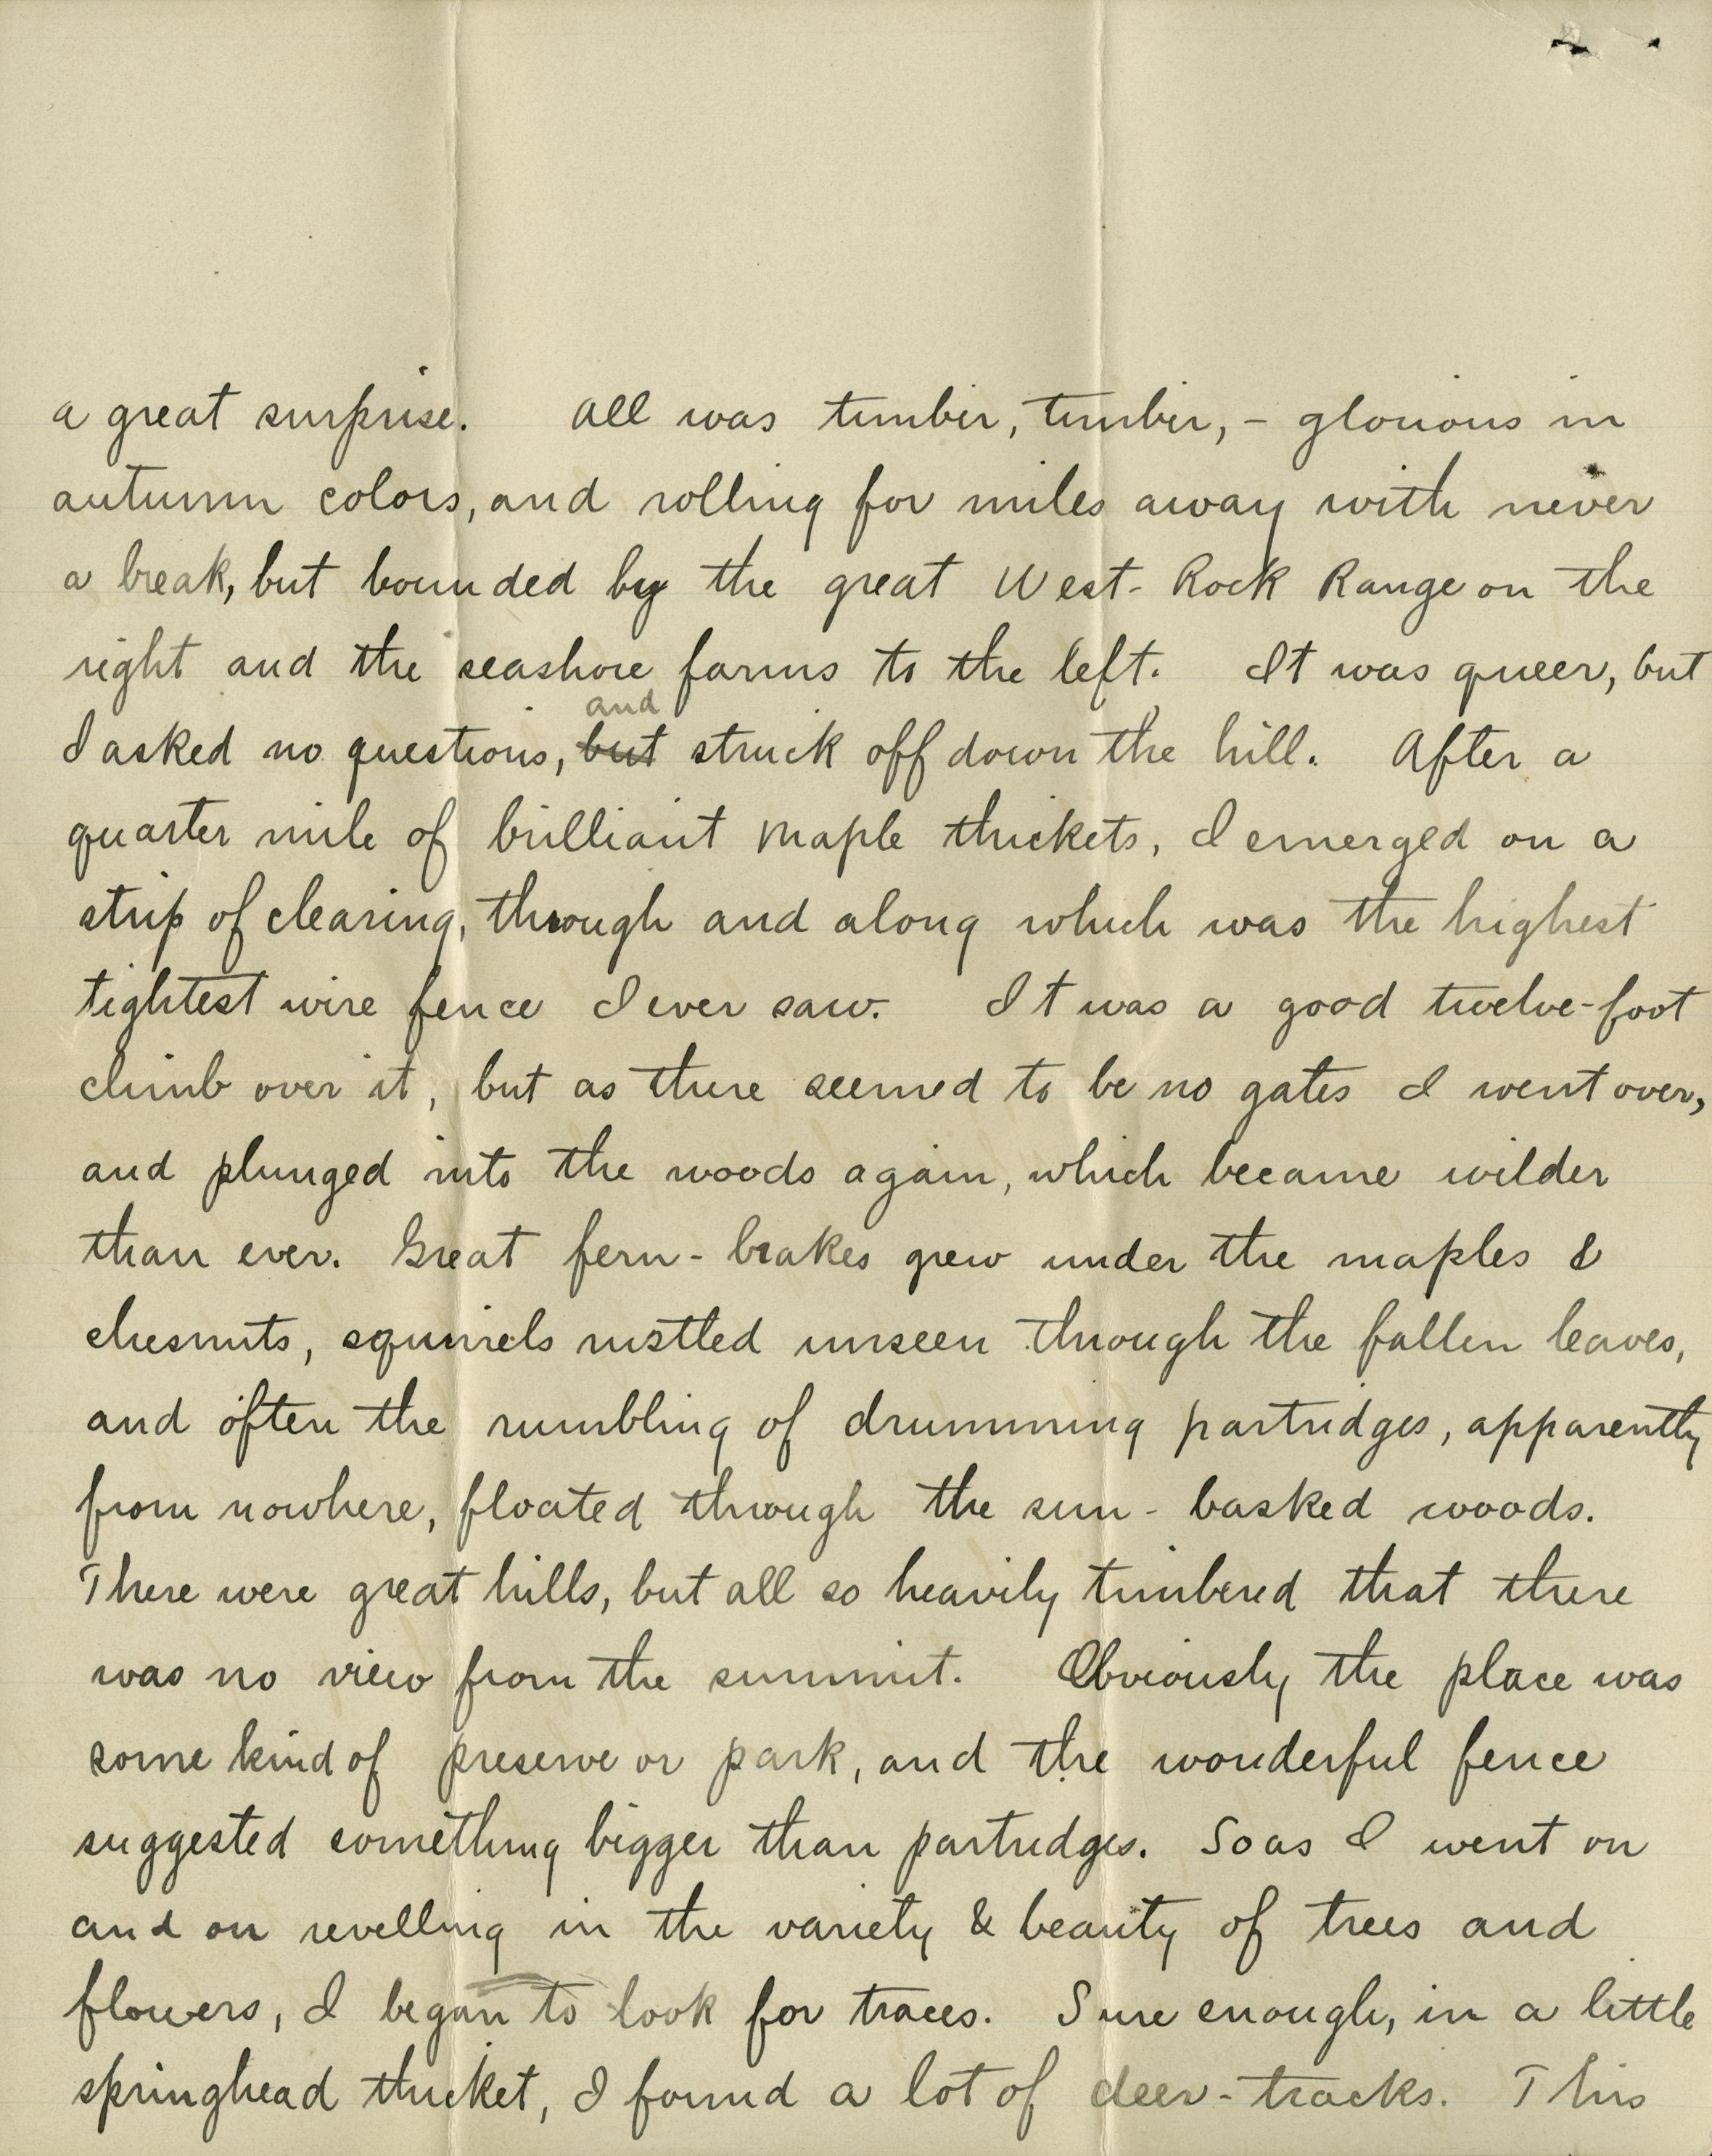 a great surprise. All was timber, timber, – glorious in
autumn colors, and rolling for miles away with never
a break, but bounded by the great West-Rock Range on the
right and the seashore farms to the left. It was queer, but
and
I asked no questions, but struck off down the hill. After a
quarter mile of brilliant maple thickets, I emerged on a
strip of clearing, through and along which was the highest
tightest wire fence I ever saw. It was a good twelve-foot
climb over it, but as there seemed to be no gates I went over,
and plunged into the woods again, which became wilder
than ever. Great fern-brakes grew under the maples &
chesnuts, squirrels rustled unseen through the fallen leaves,
and often the rumbling of drumming partridges, apparently
from nowhere, floated through the sun-basked woods.
There were great hills, but all so heavily timbered that there
was no view from the summit. Obviously the place was
some kind of preserve or park, and the wonderful fence
suggested something bigger than partridges. So as I went on
and on revelling in the variety & beauty of trees and
flowers, I began to look for traces. Sure enough, in a little
springhead thicket, I found a lot of deer-tracks. This